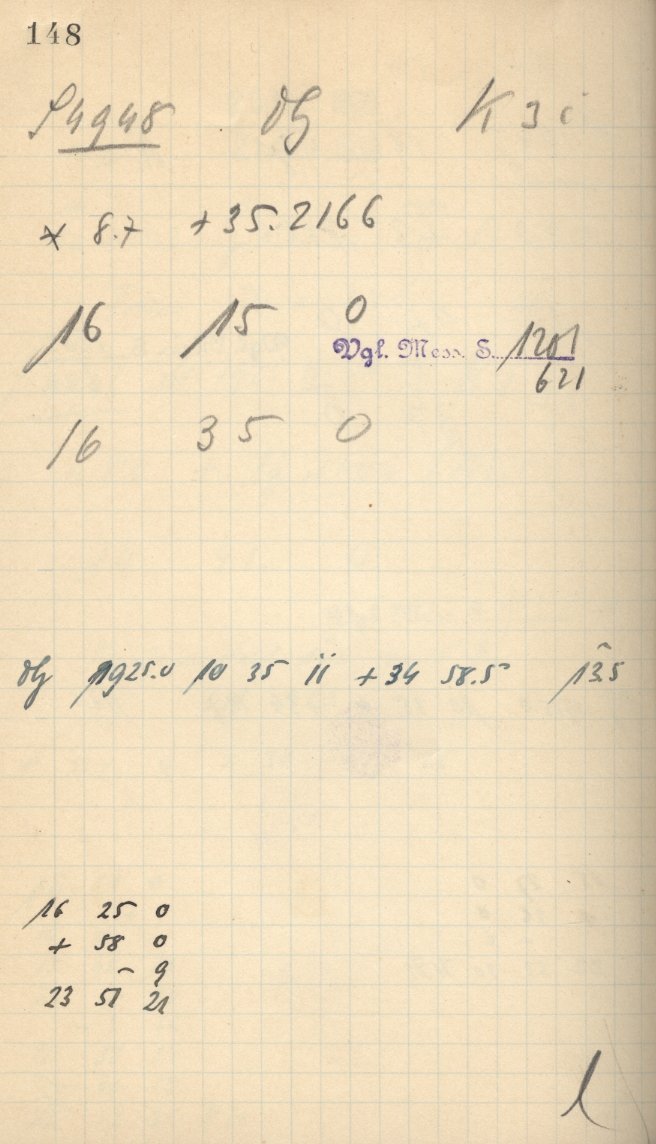 148
S4948 K 3
* 8.7 +35.2166
16 15 0
Vgl. Mess. S. 1201
621
16 35 0
1925.0 10 35 11 +34 58.5 13.5
16 25 0
+ 58 0
− 9
23 51 21